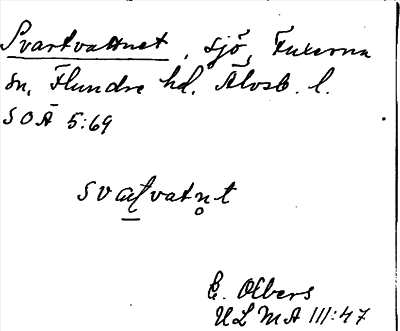 Svartvattnet, sjö, Fuxerna
sn, Flundre hd. Älvsb. l.
SOÄ 5:69
svatvatnt
E. Olbers
ULMA III:47